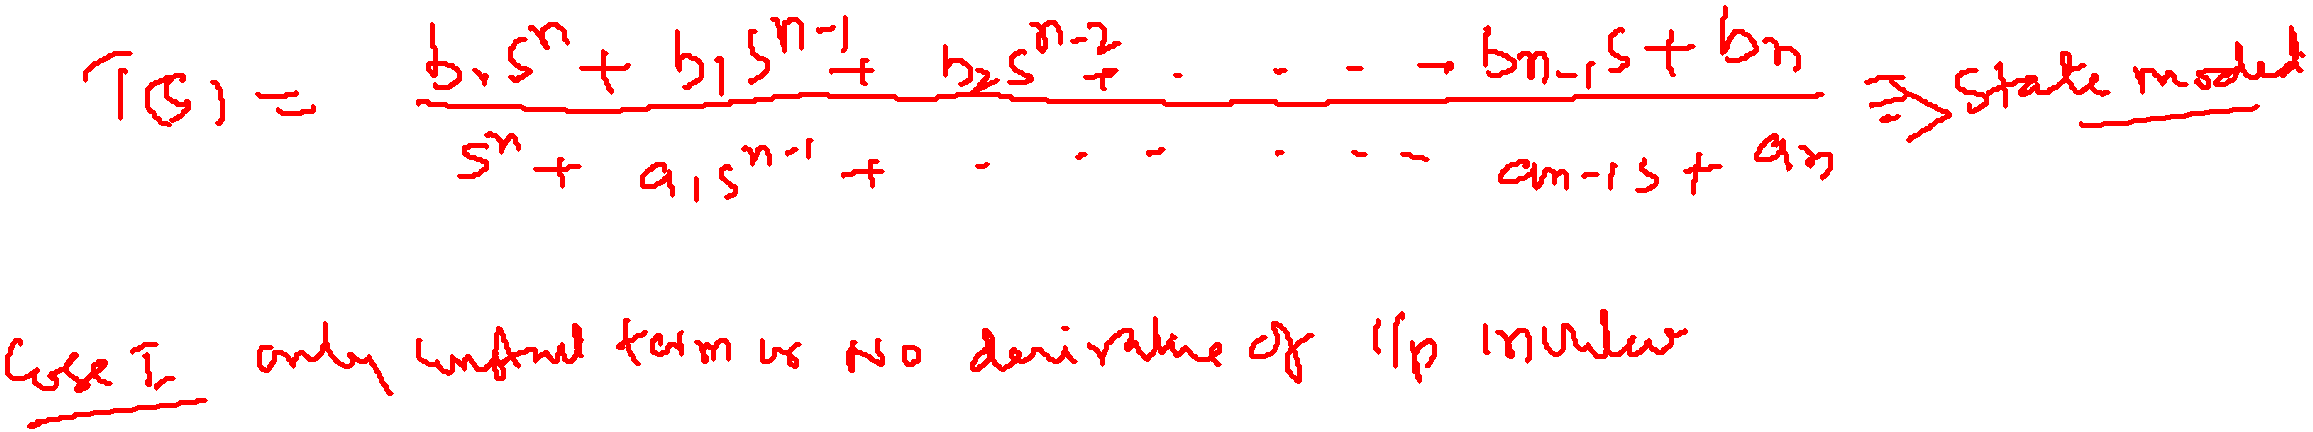 T(s) = (b₀sⁿ + b₁sⁿ⁻¹ + b₂sⁿ⁻² + . . . - - bₙ₋₁s + bₙ) / (sⁿ + a₁sⁿ⁻¹ + . . - . . - - aₙ₋₁s + aₙ) ⇒ State model
Case I only constant term or No derivative of i/p involve